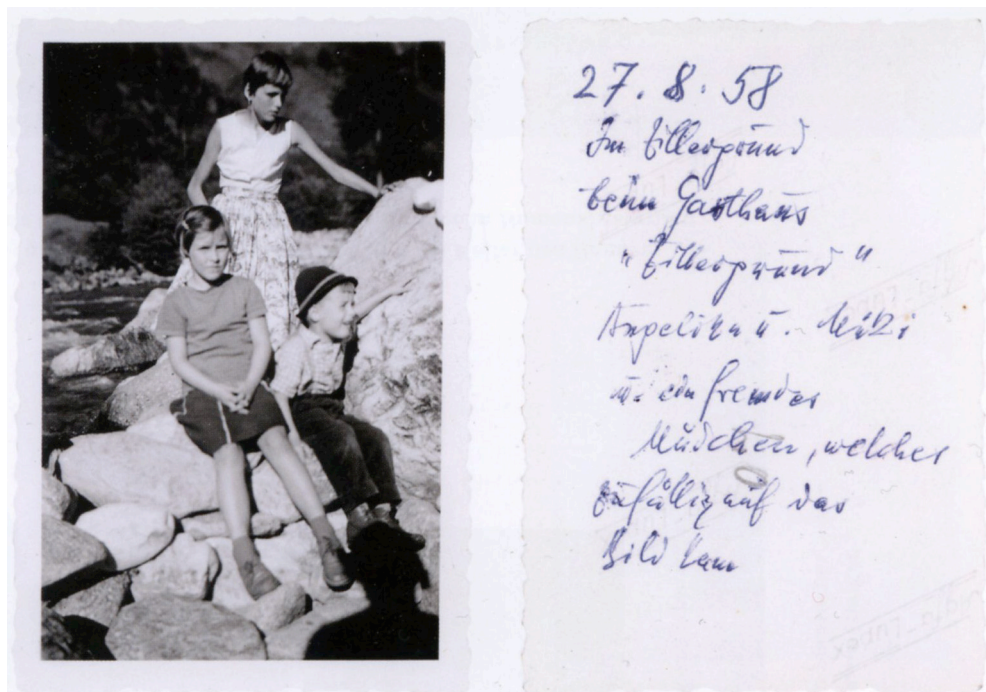 27. 8. 58
Im Zillergrund
beim Gasthaus
"Zillergrund"
Angelika u.
u. ein fremdes
Mädchen, welches
zufällig auf das
Bild kam